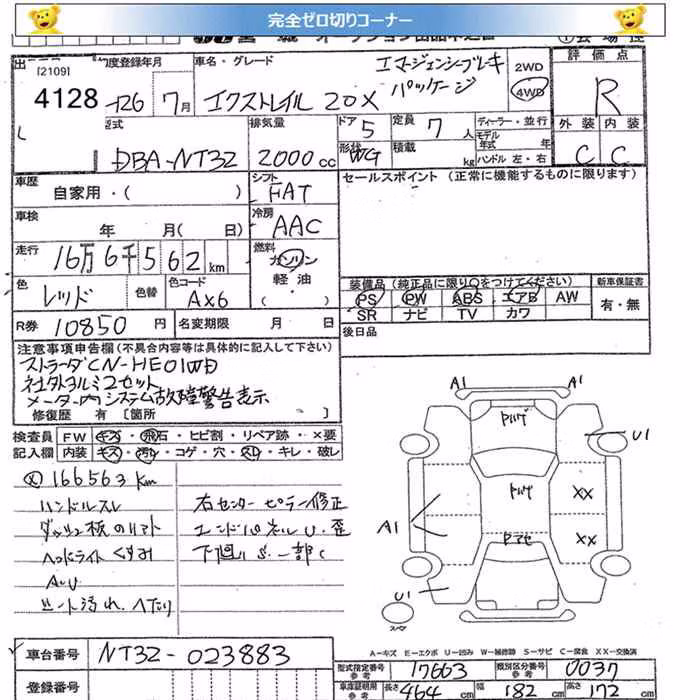 完全ゼロ切りコーナー
出
[2109]
初度登録年月
車名・グレード
エマージェンシーブレーキ
パッケージ
2WD
4WD
評価点
R
4128
26
7月
エクストレイル 20X
型式
DBA-NT32
排気量
2000cc
ドア 5
形状 WG
定員 7人
積載 kg
ディーラー・並行
モデル
年式 年
ハンドル 左・右
外装 内装
C C
車歴
自家用・( )
シフト
FAT
セールスポイント (正常に機能するものに限ります)
車検
年 月( 日)
冷房
AAC
走行
16万6千562km
燃料
ガソリン
軽油
( )
色
レッド
色替
色コード
AX6
装備品 (純正品に限り○をつけてください)
新車保証書
PS PW ABS エアB AW
有・無
SR ナビ TV カワ
R券 10850円
名変期限 月 日
後日品
注意事項申告欄 (不具合内容等は具体的に記入して下さい)
ストラーダCN-HE01WD
社外ホルミ2セット
メーター内システム故障警告表示
修復歴 有 [箇所 ]
検査員
記入欄
FW キズ・飛石・ヒビ割・リペア跡・×要
内装 キズ・汚れ・コゲ・穴・スレ・キレ・破レ
166563Km
ハンドルスレ
ダッシュ板のリアト
ヘッドライトくすみ
A.U
シート汚れ.ヘたり
右センターピラー修正
エンドパネルU.歪
下廻りS.一部C
A1
A1
U1
トルゲ
トルゲ
トアセ
A1
XX
XX
U1
スペア
A-キズ E-エクボ U-凹み W-補修跡 S-サビ C-腐食 XX-交換済
車台番号
NT32-023883
登録番号
型式指定番号
参考
17663
類別区分番号
参考
0037
車庫証明用
参考
長さ 464cm
幅 182cm
高さ 172cm